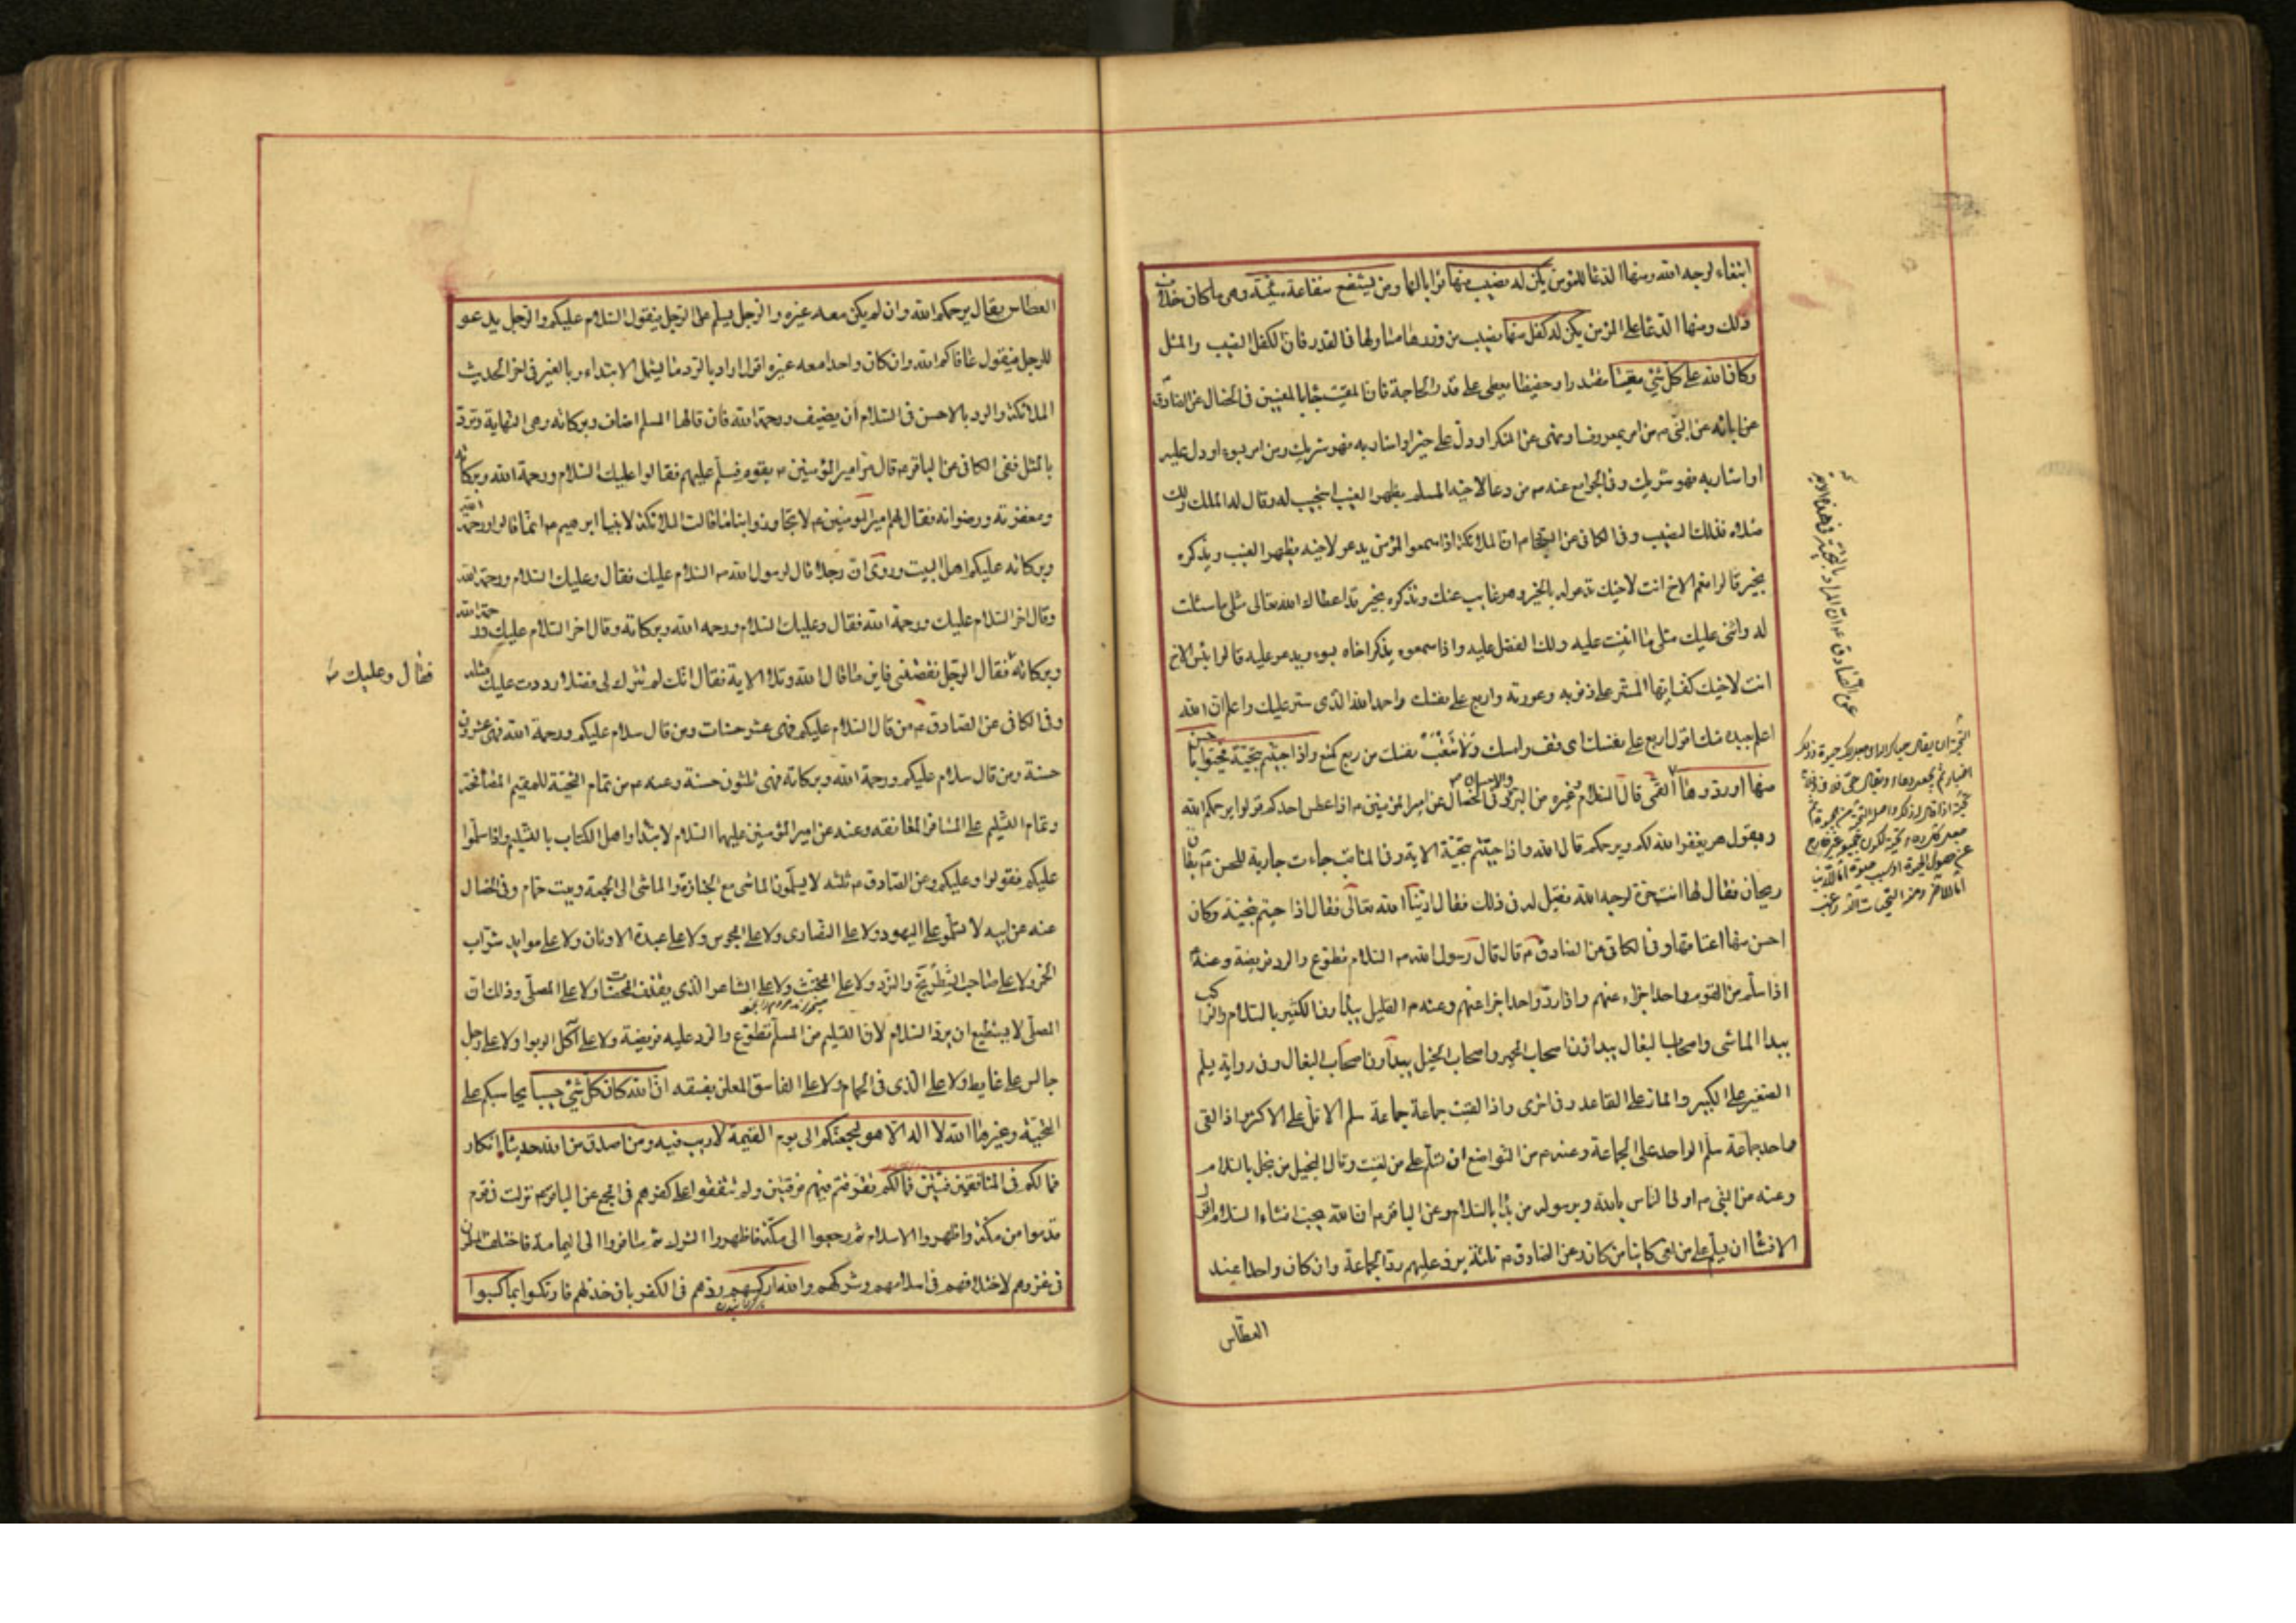 ابتغاء لوجه الله ومنها الدعا للمؤمن يكن له نصيب منها ثوابا لها ومن يشفع شفاعة سيئة وهى ما كان خلاف
ذلك ومنها الدعا على المؤمن يكن له كفل منها نصيب من وزرها مساو لها فى القدر فان الكفل النصيب والمثل
وكان الله على كل شئ مقيتا مقتدرا وحفيظا يعطى على قدر الحاجة فان المقيت جاء بالمعنيين فى الخصال عن الصادق
عن ابائه عن النبى ص من امر بمعروف او نهى عن المنكر او دل على خير او اشار به فهو شريك ومن امر بسوء او دل عليه
او اشار به فهو شريك وفى الجوامع عنه ص من دعا لاخيه المسلم بظهر الغيب استجيب له وقال له الملك ولك
مثلاه فذلك النصيب وفى الكافى عن السجاد ان الملائكة اذا سمعوا المؤمن يدعو لاخيه بظهر الغيب ويذكره
بخير قالوا نعم الاخ انت لاخيك تدعو له بالخير وهو غايب عنك وتذكره بخير قد اعطاك الله تعالى مثلى ما سئلت
له واثنى عليك مثلى ما اثنيت عليه ولك الفضل عليه واذا سمعوه يذكر اخاه بسوء ويدعو عليه قالوا بئس الاخ
انت لاخيك كف ايها المستر على ذنوبه وعورته واربع على نفسك واحمد الله الذى ستر عليك واعلم ان الله
اعلم بعبده منك اقول اربع على نفسك اى قف وامسك ولا تتعب نفسك من ربع كمنع واذا حييتم بتحية فحيوا باحسن
منها او ردوها القمى قال السلام وغيره من البر وفى الخصال عن امير المؤمنين ع اذا عطس احدكم قولوا يرحمكم الله
ويقول هو يغفر الله لكم ويرحمكم قال الله واذا حييتم بتحية الاية وفى المناقب جاءت جارية للحسن ع بطاق
ريحان فقال لها انت حرة لوجه الله فقيل له فى ذلك فقال ادبنا الله تعالى فقال اذا حييتم بتحية وكان
احسن منها اعتاقها وفى الكافى عن الصادق ع قال قال رسول الله ص السلام تطوع والرد فريضة وعنه
اذا سلم من القوم واحد اجزاء عنهم واذا رد واحد اجزا عنهم وعنه ع القليل يبدأون الكثير بالسلام والراكب
يبدا الماشى واصحاب البغال يبداون اصحاب الحمير واصحاب الخيل يبداون اصحاب البغال وفى رواية يسلم
الصغير على الكبير والمار على القاعد وفى اخرى واذا لقيت جماعة جماعة سلم الاقل على الاكثر واذا لقى
واحد جماعة سلم الواحد على الجماعة وعنه ع من التواضع ان تسلم على من لقيت وقال البخيل من بخل بالسلام
وعنه عن النبى ص اولى الناس بالله وبرسوله من بدا بالسلام وعن الباقر ع ان الله يحب افشاء السلام اقول
الافشا ان يسلم على من لقى كاينا من كان وعن الصادق ع ثلثة يرد عليهم رد الجماعة وان كان واحدا عند
العطاس
العطاس يقال يرحمكم الله وان لم يكن معه غيره والرجل يسلم على الرجل فيقول السلام عليكم والرجل يدعو
للرجل فيقول عافاكم الله وان كان واحدا معه غيره اقول اراد بالرد ما يشمل الابتداء وبالغير فى اخر الحديث
الملائكة والرد بالاحسن فى السلام ان يضيف ورحمة الله فان قالها المسلم اضاف وبركاته وهى النهاية وترد
بالمثل ففى الكافى عن الباقر ع قال مر امير المؤمنين ع بقوم فسلم عليهم فقالوا عليك السلام ورحمة الله وبركاته
ومغفرته ورضوانه فقال لهم امير المؤمنين ع لا تجاوزوا بنا ما قالت الملائكة لابينا ابرهيم ع انما قالوا رحمة الله
وبركاته عليكم اهل البيت وروى ان رجلا قال لرسول الله ص السلام عليك فقال وعليك السلام ورحمة الله
وقال اخر السلام عليك ورحمة الله فقال وعليك السلام ورحمة الله وبركاته وقال اخر السلام عليك ورحمة الله
وبركاته فقال الرجل نقصتنى فاين ما قال الله وتلا الاية فقال انك لم تترك لى فضلا رددت عليك مثله
فقال وعليك
وفى الكافى عن الصادق ع من قال السلام عليكم فهى عشر حسنات ومن قال سلام عليكم ورحمة الله فهى عشرون
حسنة ومن قال سلام عليكم ورحمة الله وبركاته فهى ثلثون حسنة وعنه ع من تمام التحية للمقيم المصافحة
وتمام التسليم على المسافر المعانقه وعنه عن امير المؤمنين عليهما السلام لا تبتداوا اهل الكتاب بالتسليم واذا سلموا
عليكم فقولوا وعليكم وعن الصادق ع ثلثه لا يسلمون الماشى مع الجنازة والماشى الى الجمعة وبيت حمام وفى الخصال
عنه عن ابيه لا تسلموا على اليهود ولا على النصارى ولا على المجوس ولا على عبدة الاوثان ولا على موايد شراب
الخمر ولا على صاحب الشطرنج والنرد ولا على المخنث ولا على الشاعر الذى يقذف المحصنات ولا على المصلى وذلك ان
المصلى لا يستطيع ان يرد السلام لان التسليم من المسلم تطوع والرد عليه فريضة ولا على آكل الربوا ولا على رجل
جالس على غايط ولا على الذى فى الحمام ولا على الفاسق المعلن بفسقه ان الله كان على كل شئ حسيبا يحاسبكم على
التحية وغيرها الله لا اله الا هو ليجمعنكم الى يوم القيمة لا ريب فيه ومن اصدق من الله حديثا انكار
فما لكم فى المنافقين فئتين فما لكم تفرقتم فيهم فرقتين ولم تتفقوا على كفرهم فى المجمع عن الباقر ع نزلت فى قوم
قدموا من مكة واظهروا الاسلام ثم رجعوا الى مكة فاظهروا الشرك ثم سافروا الى اليمامة فاختلف المسلمون
فى غزوهم لاختلافهم فى اسلامهم وشركهم والله اركسهم ردهم فى الكفر بان خذلهم فارتكسوا بما كسبوا